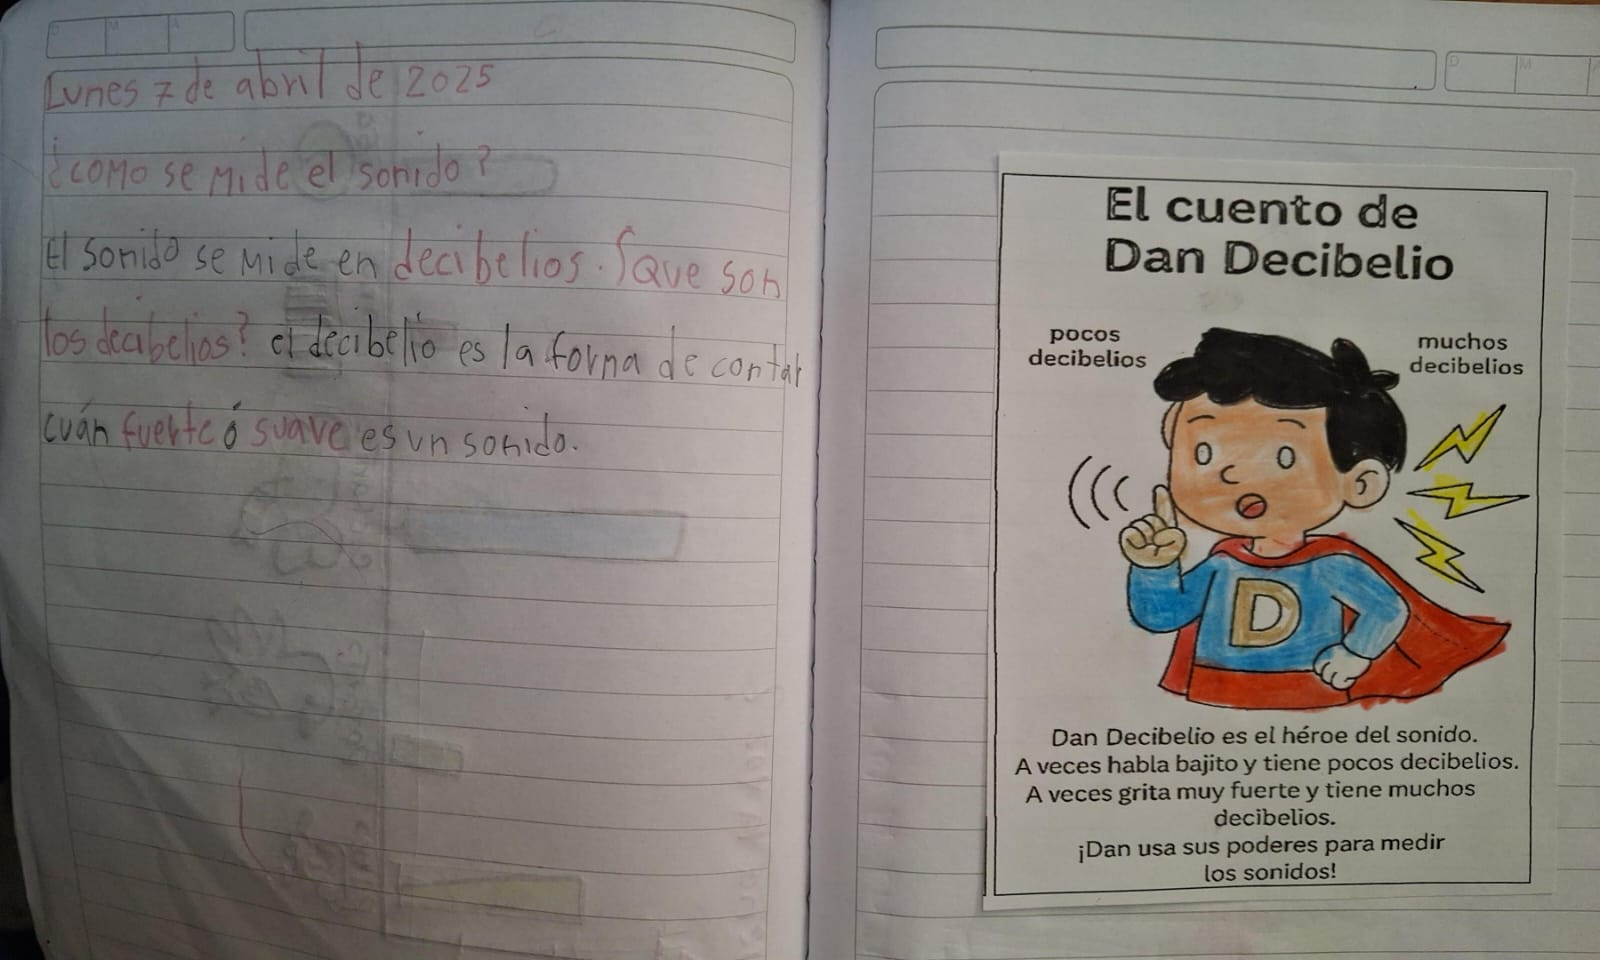 Lunes 7 de abril de 2025
¿como se mide el sonido?
El sonido se mide en decibelios. ¿que son
los decibelios? el decibelio es la forma de contar
cuán fuerte ó suave es un sonido.
El cuento de
Dan Decibelio
pocos
decibelios
muchos
decibelios
D
Dan Decibelio es el héroe del sonido.
A veces habla bajito y tiene pocos decibelios.
A veces grita muy fuerte y tiene muchos
decibelios.
¡Dan usa sus poderes para medir
los sonidos!